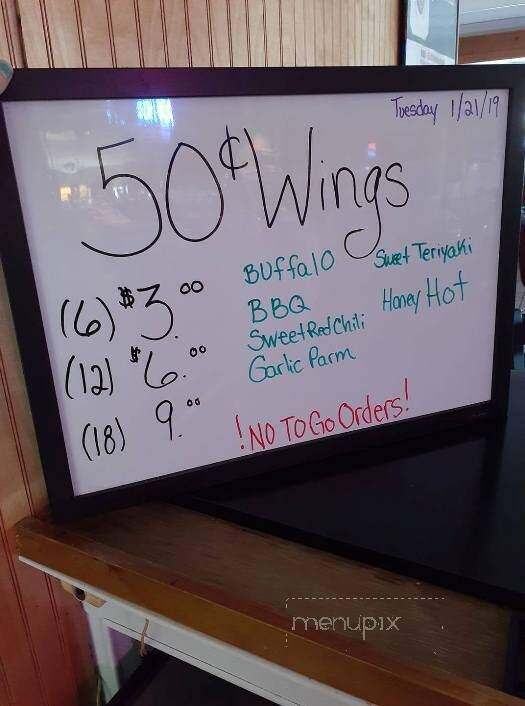 Tuesday 1/21/19
50¢ Wings
(6) $3.00
(12) $6.00
(18) 9.00
Buffalo
BBQ
Sweet Red Chili
Garlic Parm
Sweet Teriyaki
Honey Hot
! NO TO Go Orders!
menupix